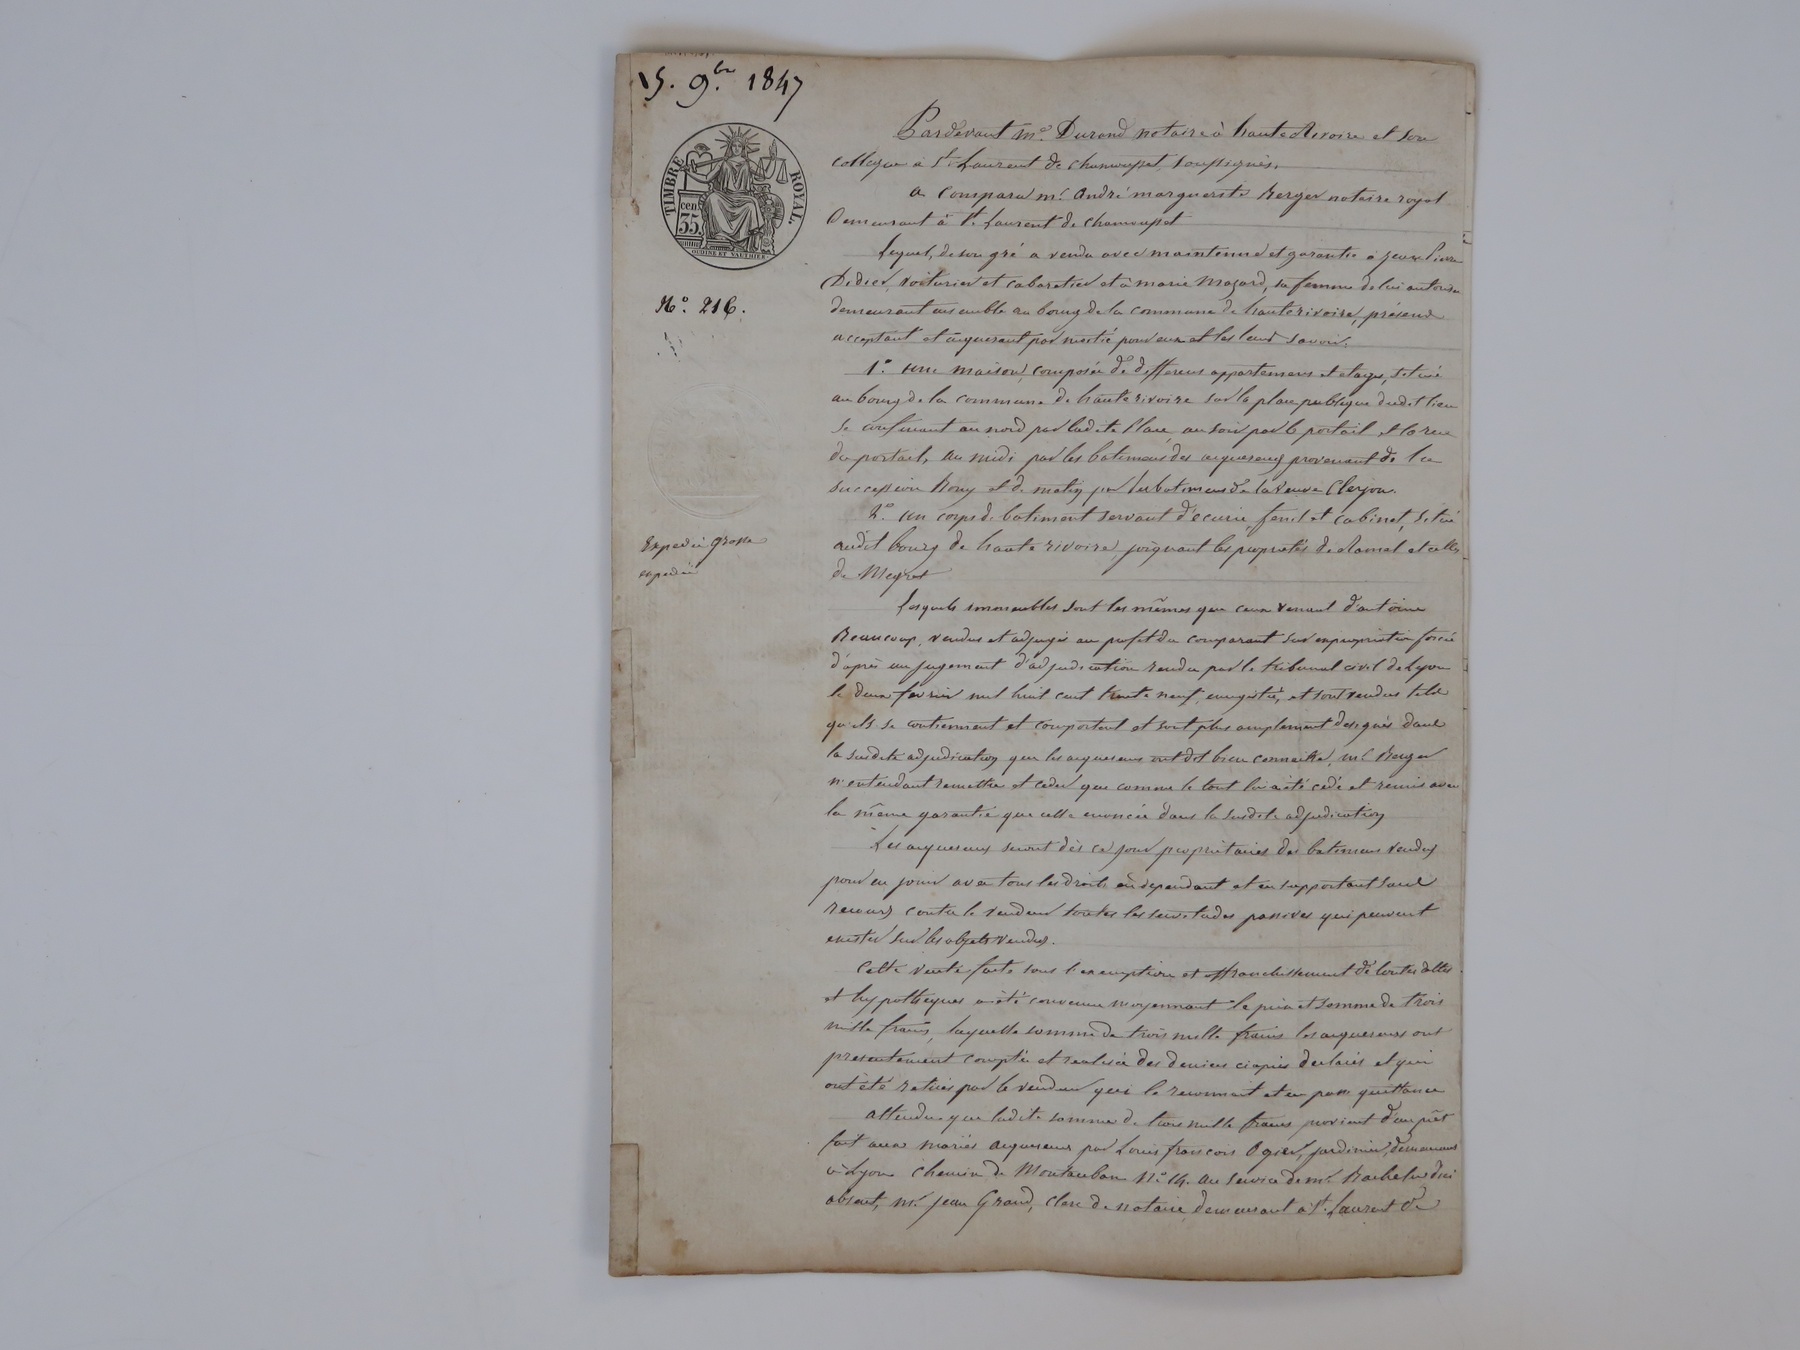 15. 9bre. 1847
TIMBRE ROYAL.
cen. 35.
OUDINE ET VAUTHIER.
No. 216.
Expedié grosse
expediée
Pardevant me. Durand notaire à hauterivoire et son
collegue a St. Laurent de chamousset soussignés.
a comparu mr. andré marguerite Berger notaire royal
Demeurant à St. Laurent de chamousset
Lequel, de son gré a vendu avec maintenue et garantie à jean pierre
Didier, voiturier et cabaretier et à marie Mazard, sa femme de lui autorisée
demeurant ensemble au bourg de la commune de hauterivoire, présens
acceptant et acquerant par moitié pour eux et les leurs savoir:
1o. une maison, composée de differens appartemens et etages, située
au bourg de la commune de hauterivoire sur la place publique dudit lieu
se confinant au nord par ladite place, au soir par le portail et la rue
du portail, au midi par les batimens des acquereurs provenant de la
succession Rony et de matin par les batimens de la veuve Clerjon.
2o. un corps de batiment servant d'écurie, fenil et cabinet, situé
audit bourg de hauterivoire, joignant les propriétés de et celles
de
Lesquels immeubles sont les mêmes que ceux venant d'antoine
Beaucoup, vendus et adjugés au profit du comparant sur expropriation forcée
d'après un jugement d'adjudication rendu par le tribunal civil de Lyon
le deux fevrier mil huit cent trente neuf, enregistré, et sont vendus tels
qu'ils se contiennent et comportent et sont plus amplement designés dans
la susdite adjudication que les acquereurs ont dit bien connaitre, mr. Berger
n'entendant remettre et ceder que comme le tout lui a été cedé et remis avec
la même garantie que celle enoncée dans la susdite adjudication
Les acquereurs seront dès ce jour propriétaires des batimens vendus
pour en jouir avec tous les droits en dependant et en supportant sans
recours contre le vendeur toutes les servitudes passives qui peuvent
exister sur les objets vendus.
Cette vente faite sous l'exemption et affranchissement de toutes dettes
et hypothèques a été convenue moyennant le prix et somme de trois
mille francs, laquelle somme de trois mille francs les acquereurs ont
presentement comptée et realisée des deniers ciaprès declarés et qui
ont été retirés par le vendeur qui le reconnait et en passe quittance
attendu que ladite somme de trois mille francs provient d'un prêt
fait aux mariés acquereurs par Louis françois Ogier, jardinier, demeurant
à Lyon chemin de Montauban No. 14. au service de mr.
absent, mr. jean Grand, clerc de notaire demeurant à St. Laurent de